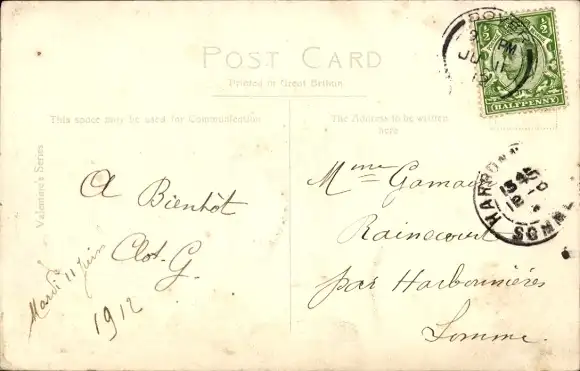 POST CARD
Printed in Great Britain
This space may be used for Communication
The Address to be written
here
Valentine's Series
A Bientôt
Clot. G.
Mardi 11 Juin
1912
Mme Gamard
Rainecourt
par Harbonnières
Somme.
DOVER
PM
JU 11
12
½ ½
HALFPENNY
HARBONN
1345
12-6